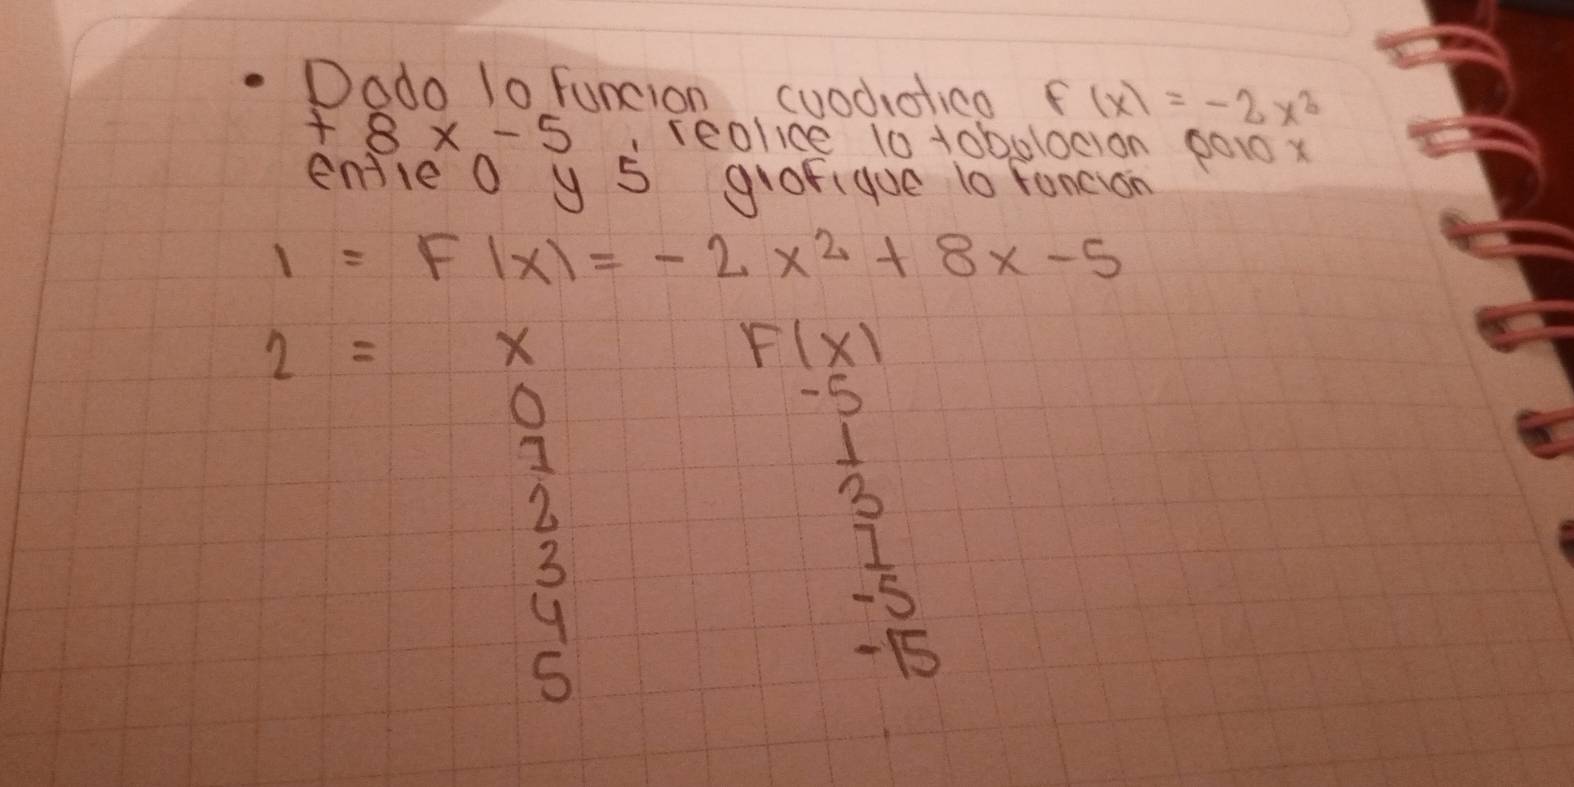 • Dado la función cuadratica F(x) = -2x²
+ 8x - 5, realice la tabulacion para x
entre 0 y 5 grafique la función
1 = F(x) = -2x² + 8x - 5
2 = x F(x)
0 -5
1 1
2 3
3 1
4 -5
5 -15